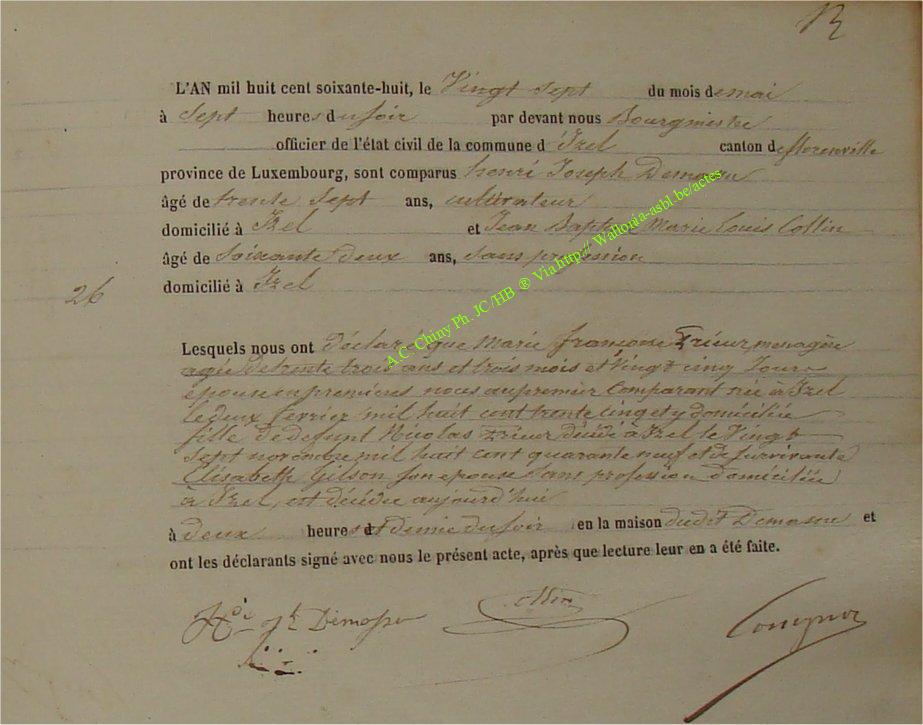 L'AN mil huit cent soixante-huit, le Vingt sept du mois de mai
à Sept heures du soir par devant nous Bourgmestre
officier de l'état civil de la commune d'Izel canton de florenville
province de Luxembourg, sont comparus henri Joseph
âgé de trente Sept ans, cultivateur
domicilié à Izel et Jean Baptiste Marie Louis Collin
âgé de Soixante deux ans, Sans profession
26
domicilié à Izel
Lesquels nous ont déclaré que Marie françoise Trieur menagère
agée de trente trois ans et trois mois et Vingt cinq Jours
épouse en premières noces au premier Comparant née à Izel
le deux fevrier mil huit cent trente cinq et y domiciliée
fille de defunt Nicolas Trieur décédé à Izel le Vingt
Sept novembre mil huit cent quarante neuf et de Survivante
Elisabeth Gilson Son epouse Sans profession domiciliée
à Izel, est décédée aujourd'hui
à deux heures et demie du soir en la maison dudit et
ont les déclarants signé avec nous le présent acte, après que lecture leur en a été faite.
Collin
A.C. Chiny Ph. JC/HB ® Via http:// Wallonia-asbl.be/actes